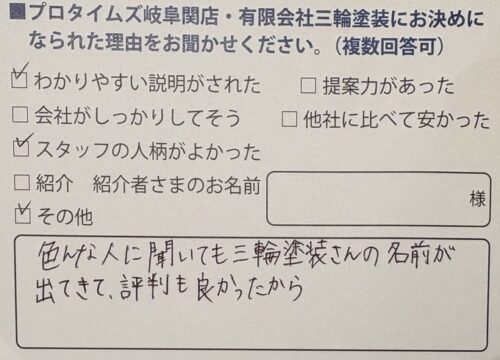 ■プロタイムズ岐阜関店・有限会社三輪塗装にお決めに
なられた理由をお聞かせください。（複数回答可）
☑ わかりやすい説明がされた　□ 提案力があった
□ 会社がしっかりしてそう　□ 他社に比べて安かった
☑ スタッフの人柄がよかった
□ 紹介　紹介者さまのお名前　様
☑ その他
色んな人に聞いても三輪塗装さんの名前が
出てきて、評判も良かったから